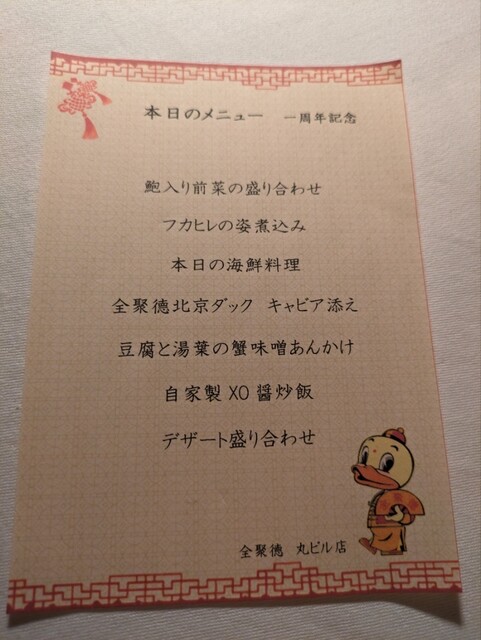 本日のメニュー 一周年記念
鮑入り前菜の盛り合わせ
フカヒレの姿煮込み
本日の海鮮料理
全聚德北京ダック キャビア添え
豆腐と湯葉の蟹味噌あんかけ
自家製 XO 醤炒飯
デザート盛り合わせ
全聚德 丸ビル店